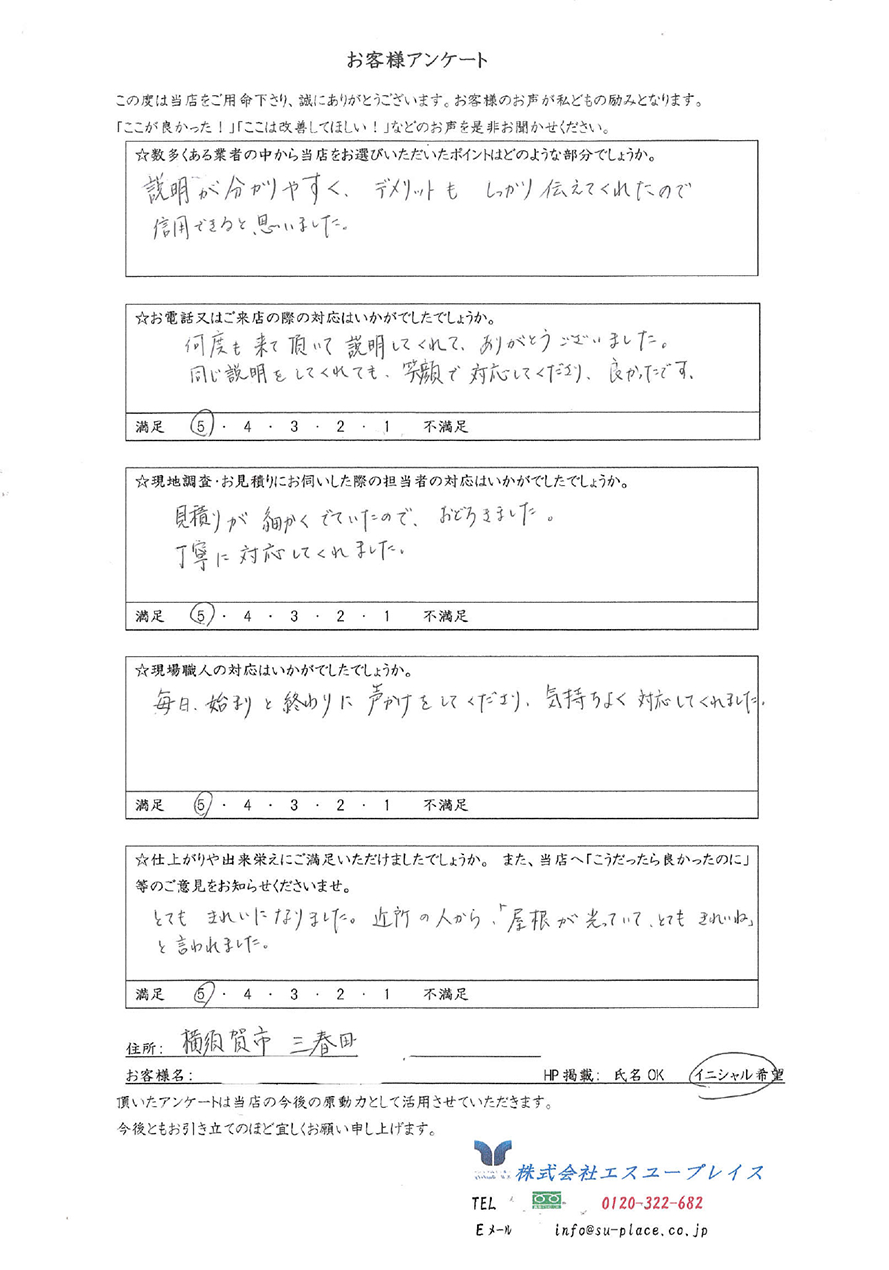 お客様アンケート
この度は当店をご用命下さり、誠にありがとうございます。お客様のお声が私どもの励みとなります。
「ここが良かった！」「ここは改善してほしい！」などのお声を是非お聞かせください。
☆数多くある業者の中から当店をお選びいただいたポイントはどのような部分でしょうか。
説明が分かりやすく、デメリットも しっかり伝えてくれたので
信用できると思いました。
☆お電話又はご来店の際の対応はいかがでしたでしょうか。
何度も来て頂いて説明してくれて、ありがとうございました。
同じ説明をしてくれても、笑顔で対応してくださり、良かったです。
満足 5 ・ 4 ・ 3 ・ 2 ・ 1 不満足
☆現地調査・お見積りにお伺いした際の担当者の対応はいかがでしたでしょうか。
見積りが細かくでていたので、おどろきました。
丁寧に対応してくれました。
満足 5 ・ 4 ・ 3 ・ 2 ・ 1 不満足
☆現場職人の対応はいかがでしたでしょうか。
毎日、始まりと終わりに声かけをしてくださり、気持ちよく対応してくれました。
満足 5 ・ 4 ・ 3 ・ 2 ・ 1 不満足
☆仕上がりや出来栄えにご満足いただけましたでしょうか。 また、当店へ「こうだったら良かったのに」
等のご意見をお知らせくださいませ。
とても きれいになりました。近所の人から、「屋根が光っていて、とても きれいね」
と言われました。
満足 5 ・ 4 ・ 3 ・ 2 ・ 1 不満足
住所： 横須賀市 三春町
お客様名： HP掲載： 氏名OK イニシャル希望
頂いたアンケートは当店の今後の原動力として活用させていただきます。
今後ともお引き立てのほど宜しくお願い申し上げます。
株式会社エスユープレイス
TEL 0120-322-682
Eメール info@su-place.co.jp